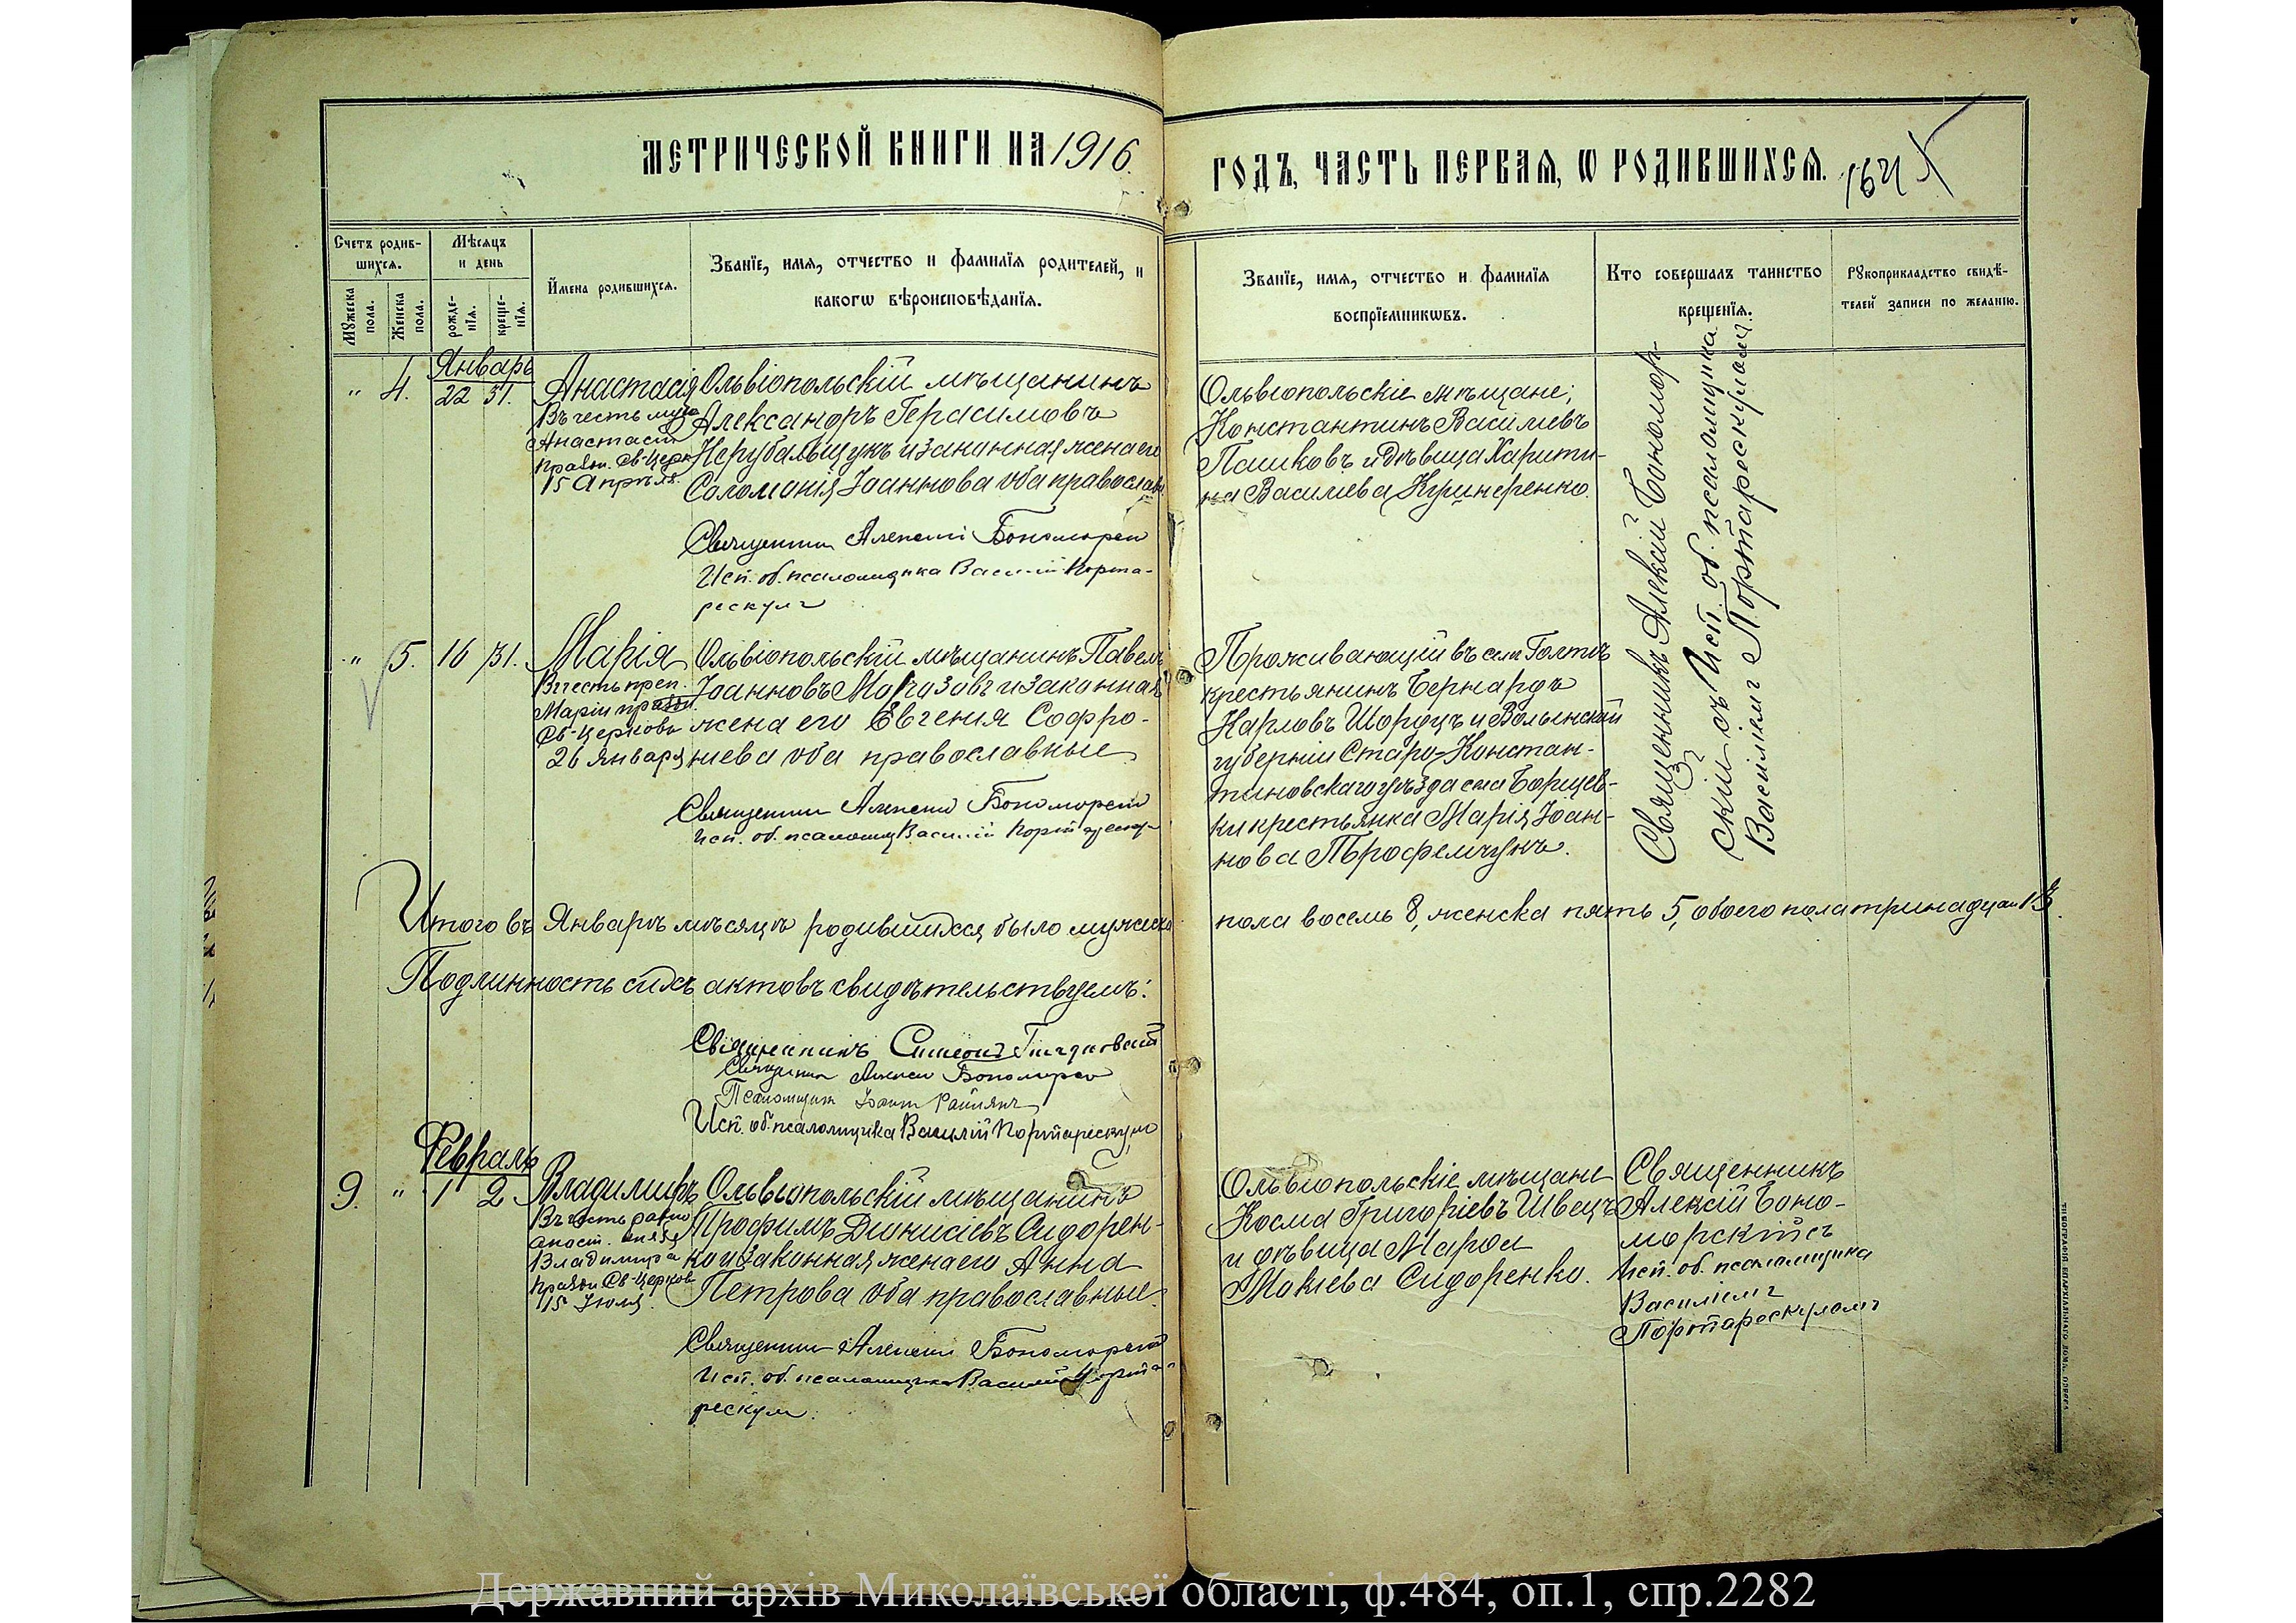 МЕТРИЧЕСКОЙ КНИГИ НА 1916.
ГОДЪ, ЧАСТЬ ПЕРВАЯ, Ѡ РОДИВШИХСЯ.
Счетъ родив-
шихся.
Мужеска
пола.
Женска
пола.
Мѣсяцъ
и день
рожде-
нїя.
креще-
нїя.
Имена родившихся.
Званїе, имя, отчество и фамилїя родителей, и
какогѡ вѣроисповѣданїя.
Званїе, имя, отчество и фамилїя
воспрїемникѡвъ.
Кто совершалъ таинство
крещенїя.
Рукоприкладство свидѣ-
телей записи по желанію.
Январь
" 4. 22 31.
Анастасія
Въ честь муч.
Анастасіи
праздн. Св. Церк.
15 Апрѣля.
Ольвіопольскій мѣщанинъ
Александръ Герасимовъ
и законная жена его
Соломонія Іоаннова оба православн.
Священникъ Алексій Бономорскій
Исп. об. псаломщика Василій Порта-
рескулъ
Ольвіопольскіе мѣщане;
Константинъ Василіевъ
Пашковъ и дѣвица Харити-
на Василіева
Священникъ Алексій Бономор-
скій съ Исп. об. псаломщика
Василіемъ Портарескуломъ
" 5. 16 31.
Марія
Въ честь преп.
Маріи праздн.
Св. Церковь
26 января
Ольвіопольскій мѣщанинъ Павелъ
Іоанновъ и законная
жена его Евгенія Софро-
ніева оба православные
Священникъ Алексій Бономорскій
Исп. об. псаломщ. Василій Портареску-
Проживающій въ селѣ Голтѣ
крестьянинъ Бернардъ
Карловъ и Волынской
губерніи Старо-Констан-
тиновскаго уѣзда села Борщев-
ки крестьянка Марія Іоан-
нова
Итого въ Январѣ мѣсяцѣ родившихся было мужеска
пола восемь 8, женска пять 5, обоего пола тринадцать 13.
Подлинность сихъ актовъ свидѣтельствуемъ:
Священникъ Симеонъ
Священникъ Алексій Бономорскій
Псаломщикъ Іоаннъ
Исп. об. псаломщика Василій Портарескулъ
Февраль
9. " 1 2
Владимиръ
Въ честь равно
апост. князя
Владимира
праздн. Св. Церков.
15 Іюля.
Ольвіопольскій мѣщанинъ
Трофимъ Діонисіевъ Сидорен-
ко и законная жена его Анна
Петрова оба православные.
Священникъ Алексій Бономорскій
Исп. об. псаломщика Василій Порта-
рескулъ.
Ольвіопольскіе мѣщане
Косма Григоріевъ Швецъ
и дѣвица
Мокіева Сидоренко.
Священникъ
Алексій Боно-
морскій съ
Исп. об. псаломщика
Василіемъ
Портарескуломъ
ТИПОГРАФІЯ ЕПАРХІАЛЬНАГО ДОМА, ОДЕССА.
Державний архів Миколаївської області, ф.484, оп.1, спр.2282